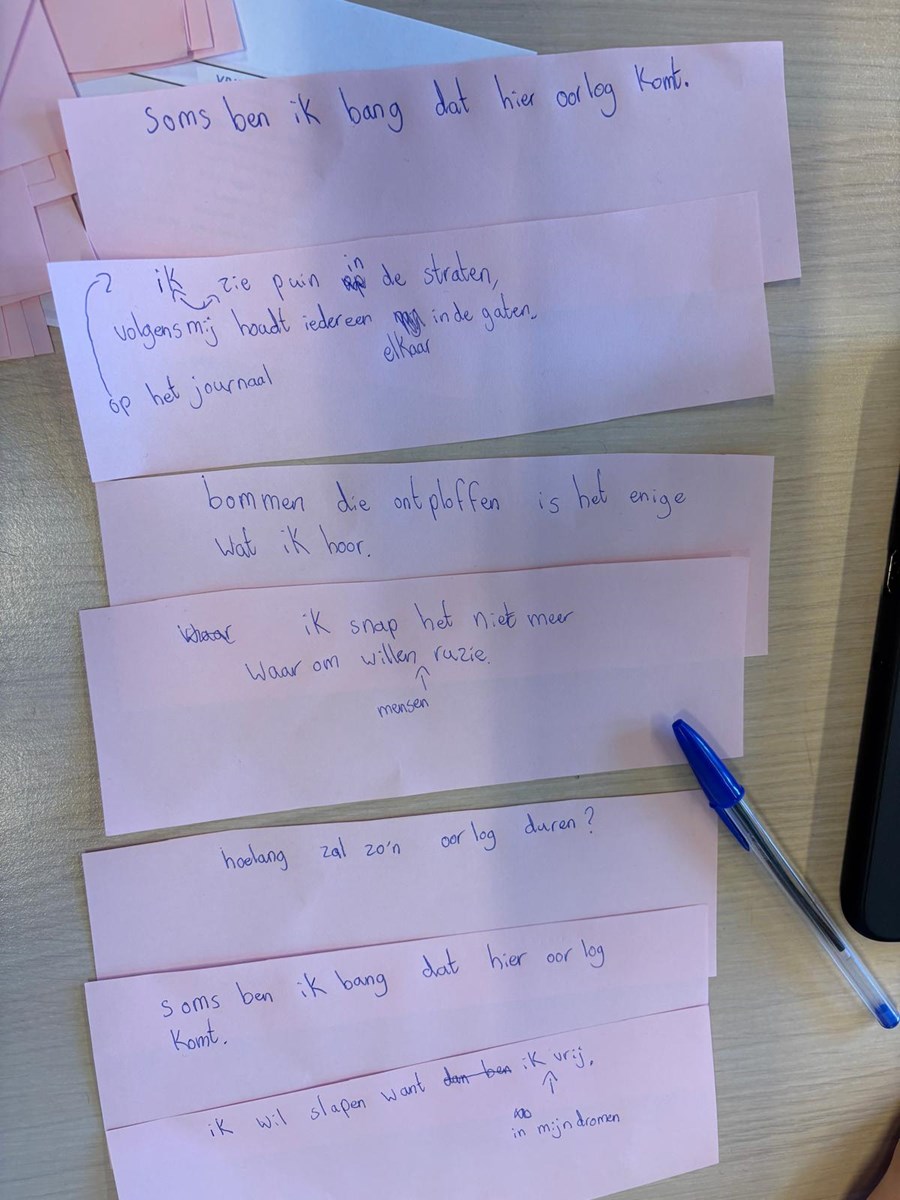 Soms ben ik bang dat hier oorlog komt.
ik zie puin in de straten,
volgens mij houdt iedereen in de gaten.
elkaar
op het journaal
bommen die ontploffen is het enige
wat ik hoor.
ik snap het niet meer
Waarom willen ruzie.
mensen
hoelang zal zo'n oorlog duren?
Soms ben ik bang dat hier oorlog
komt.
ik wil slapen want dan ben ik vrij.
in mijn dromen